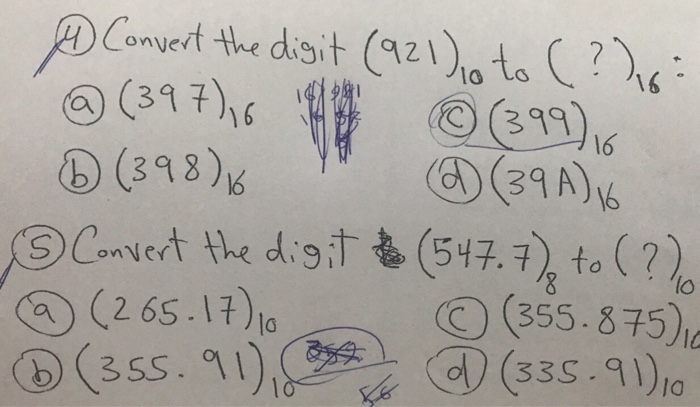 ④ Convert the digit (921)₁₀ to (?)₁₆:
ⓐ (397)₁₆ ⓒ (399)₁₆
ⓑ (398)₁₆ ⓓ (39A)₁₆
⑤ Convert the digit (547.7)₈ to (?)₁₀
ⓐ (265.17)₁₀ ⓒ (355.875)₁₀
ⓑ (355.91)₁₀ ⓓ (335.91)₁₀